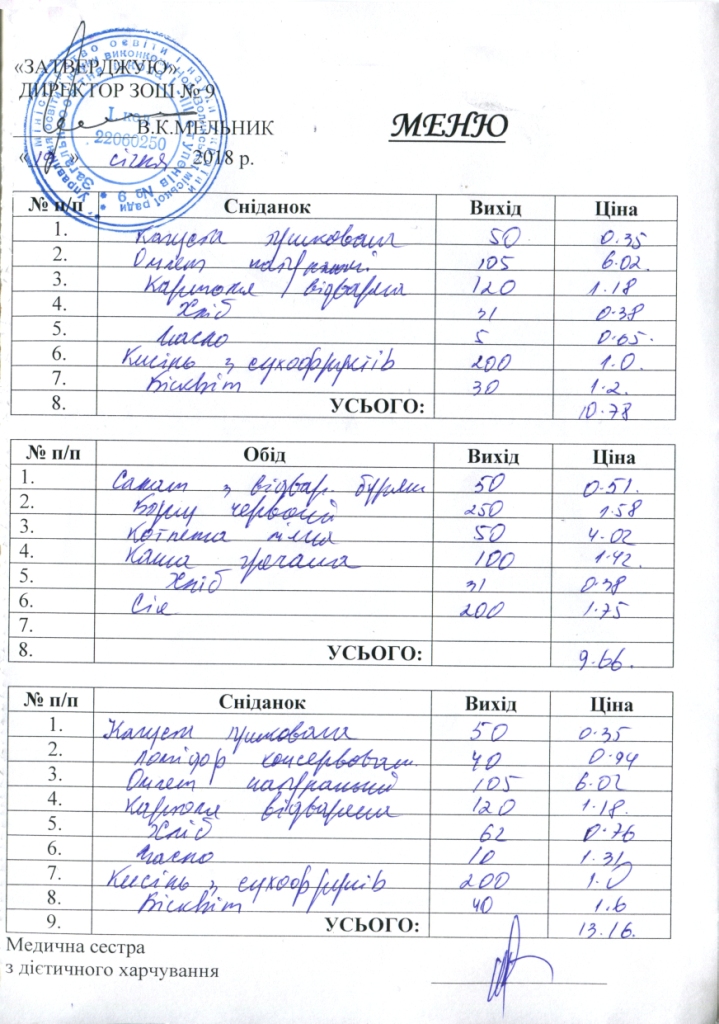 «ЗАТВЕРДЖУЮ»
ДИРЕКТОР ЗОШ № 9
В.К.МЕЛЬНИК
МЕНЮ
« » січня 2018 р.
22060250
№ 9
№ п/п Сніданок Вихід Ціна
1. Капуста тушкована 50 0.35
2. Омлет натуральний 105 6.02.
3. Картопля відварена 120 1.18
4. Хліб 31 0.38
5. Масло 5 0.65.
6. Кисіль з сухофруктів 200 1.0.
7. Бісквіт 30 1.2.
8. УСЬОГО: 10.78
№ п/п Обід Вихід Ціна
1. Салат з відвар. буряка 50 0.51.
2. Борщ червоний 250 1.58
3. Котлета 50 4.02
4. Каша гречана 100 1.42.
5. Хліб 31 0.38
6. Сік 200 1.75
7.
8. УСЬОГО: 9.66.
№ п/п Сніданок Вихід Ціна
1. Капуста тушкована 50 0.35
2. Помідор консервован. 40 0.94
3. Омлет натуральний 105 6.02
4. Картопля відварена 120 1.18.
5. Хліб 62 0.76
6. Масло 10 1.31
7. Кисіль з сухофруктів 200 1.0
8. Бісквіт 40 1.6
9. УСЬОГО: 13.16.
Медична сестра
з дієтичного харчування